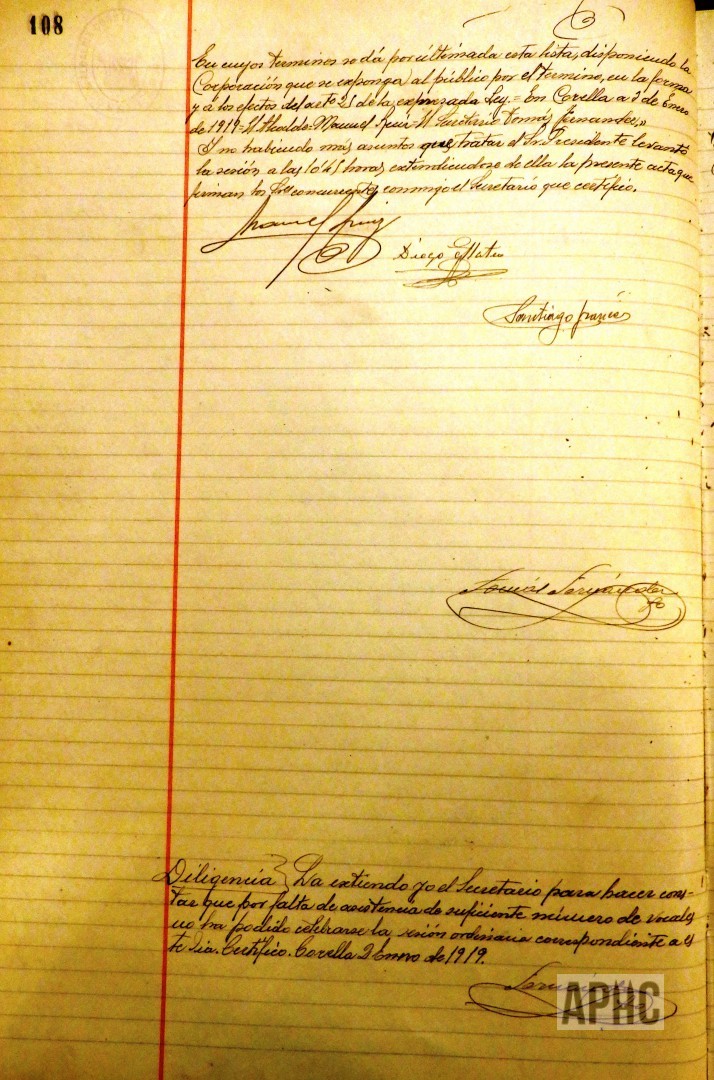 108
En cuyos terminos se dá por últimada esta lista, disponiendo la
Corporación que se exponga al público por el termino, en la forma
y á los efectos del artº 25 de la expresada Ley.= En Corella a 3 de Enero
de 1919= El Alcalde= Manuel Ruiz= El Secretario Tomás Fernandez,»
I no habiendo más asuntos que tratar el Sr. Presidente levantó
la sesión a las 10'45 horas extendiendose de ella la presente acta que
firman los Sres concurrentes conmigo el Secretario que certifico.
Manuel Ruiz
Diego Mateo
Santiago Francés
Tomás Fernández
Diligencia} La extiendo yo el Secretario para hacer cons-
tar que por falta de asistencia de suficiente número de vocales
no ha podido celebrarse la sesión ordinaria correspondiente a es
te dia. Certifico. Corella 2 Enero de 1919.
Fernández
APHC